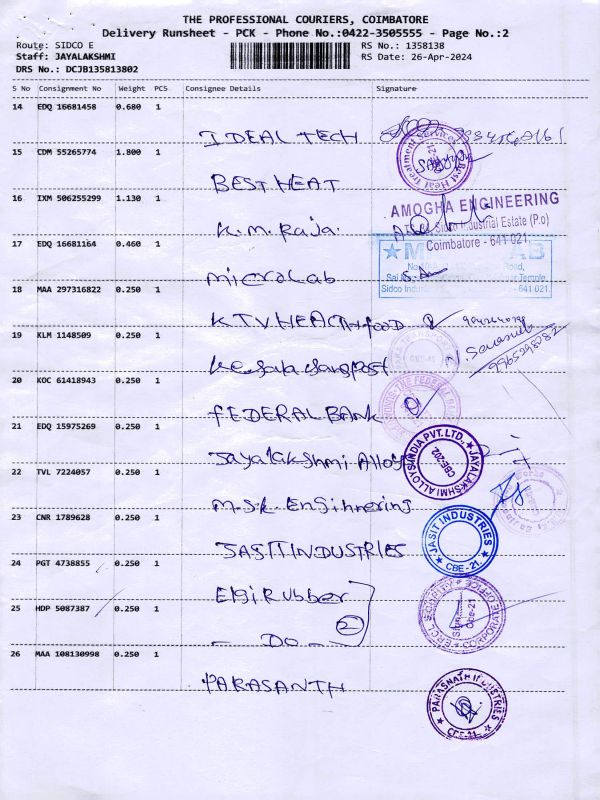 THE PROFESSIONAL COURIERS, COIMBATORE
Delivery Runsheet - PCK - Phone No.:0422-3505555 - Page No.:2
Route: SIDCO E
RS No.: 1358138
Staff: JAYALAKSHMI
RS Date: 26-Apr-2024
DRS No.: DCJB135813802
S No Consignment No Weight PCS Consignee Details Signature
14 EDQ 16681458 0.680 1
IDEAL TECH
15 CDM 55265774 1.800 1
Best Heat Treatment Services
BEST HEAT
16 IXM 506255299 1.130 1
AMOGHA ENGINEERING
Sidco Industrial Estate (P.o)
Coimbatore - 641 021.
K.M. Raja.
17 EDQ 16681164 0.460 1
Road,
Temple,
Sidco - 641 021.
microLab
18 MAA 297316822 0.250 1
KTV HEALTH food
19 KLM 1148509 0.250 1
N. Saravan
9965298282
20 KOC 61418943 0.250 1
THE FEDERAL
FEDERAL BANK
21 EDQ 15975269 0.250 1
JAYALAKSHMI ALLOYS INDIA PVT. LTD.
CBE-202.
Jayalakshmi Alloy
22 TVL 7224057 0.250 1
M.S.K. Enginnering.
23 CNR 1789628 0.250 1
JASIT INDUSTRIES
CBE - 21.
JASIT INDUSTRIES
24 PGT 4738855 0.250 1
Elgi Rubber
SECURITY CORPORATE OFFICE
Cbe-21
25 HDP 5087387 0.250 1
2
- Do -
26 MAA 108130998 0.250 1
PARASANTH
PARASNATH INDUSTRIES
CBE-21.